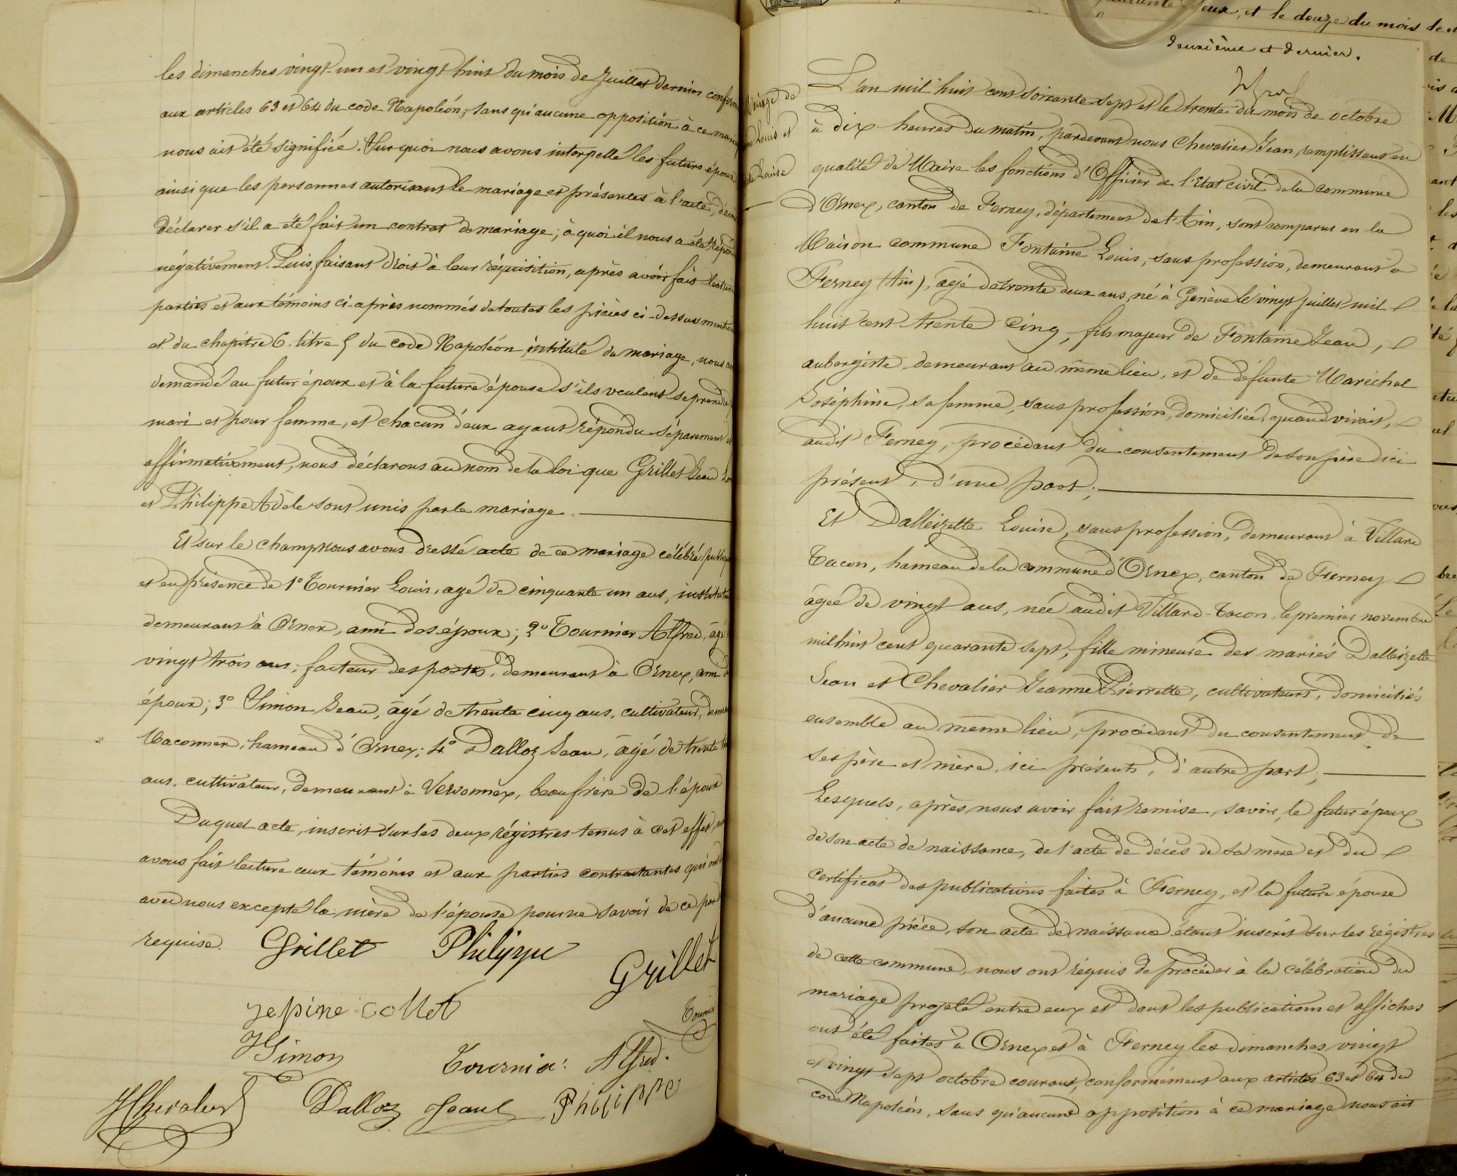 les dimanches vingt-un et vingt huit du mois de Juillet dernier, conform
aux articles 63 et 64 du code Napoléon, sans qu'aucune opposition à ce maria
nous ait été signifiée. Sur quoi nous avons interpellé les futurs époux
ainsi que les personnes autorisant le mariage et présentes à l'acte, d'avoir
déclarer s'il a été fait un contrat de mariage; à quoi il nous a été répondu
négativement. Puis, faisant droit à leur réquisition, après avoir fait lecture
parties et aux témoins ci-après nommés de toutes les pièces ci-dessus ment
et du chapitre 6. titre 5 du code Napoléon, intitulé du mariage, nous
demandé au futur époux et à la future épouse s'ils veulent se prendre
mari et pour femme, et chacun d'eux ayant répondu séparément et
affirmativement, nous déclarons au nom de la loi que Grillet Jean
et Philippe Adele sont unis par le mariage.
Et sur le champ nous avons dressé acte de ce mariage célébré publiq
et en présence de 1° Tournier Louis, agé de cinquante un ans, institut
demeurant à Ornex, ami des époux; 2° Tournier Alfred, âgé
vingt trois ans; facteur des postes, demeurant à Ornex, ami
époux; 3° Simon Jean, âgé de trente cinq ans, cultivateur, dem
Maconnex, hameau d'Ornex; 4° Dalloz Jean, âgé de trente
ans, cultivateur, demeurant à Versonnex, beau frère de l'époux
Duquel acte, inscrit sur les deux régistres tenus à cet effet, nous
avons fait lecture aux témoins et aux parties contractantes qui ont
avec nous excepté la mère de l'épouse pour ne savoir de ce
requise. Grillet Philippe
Grillet
Jepine Collet
Tournier
JSimon Tournier Alfred.
JChevalier Dalloz Jean Philippe
deuxième et dernier.
Mariage de
Louis et
Louise
L'an mil huit cent soixante-sept et le trente du mois de octobre
à dix heures du matin, pardevant nous Chevalier Jean, remplissant en
qualité de Maire les fonctions d'Officier de l'Etat civil de la commune
d'Ornex, canton de Ferney, département de l'Ain, sont comparus en la
Maison commune Fontaine Louis, sans profession, demeurant à
Ferney (Ain), âgé de trente deux ans, né à Genève le vingt juillet mil
huit cent trente cinq, fils majeur de Fontaine Jean,
aubergiste, demeurant au même lieu, et de défunte Maréchal
Joséphine, sa femme, sans profession, domiciliée, quand vivait,
audit Ferney, procédant du consentement de son père ici
présent, d'une part;
Et Dalleizette Louise, sans profession, demeurant à Villard
Tacon, hameau de la commune d'Ornex, canton de Ferney
agée de vingt ans, née audit Villard-Tacon le premier novembre
mil huit cent quarante sept, fille mineure des mariés Dalleizette
Jean et Chevalier Jeanne Pierrette, cultivateurs, domiciliés
ensemble au même lieu, procédant du consentement de
ses père et mère, ici présents, d'autre part,
Lesquels, après nous avoir fait remise, savoir, le futur époux
de son acte de naissance, de l'acte de décès de sa mère et du
certificat des publications faites à Ferney, et la future épouse
d'aucune pièce, son acte de naissance étant inscrit sur les régistres
de cette commune, nous ont requis de procéder à la célébration du
mariage projeté entre eux et dont les publications et affiches
ont été faites à Ornex et à Ferney les dimanches vingt
et vingt sept octobre courant, conformément aux articles 63 et 64 du
code Napoléon, sans qu'aucune opposition à ce mariage nous ait